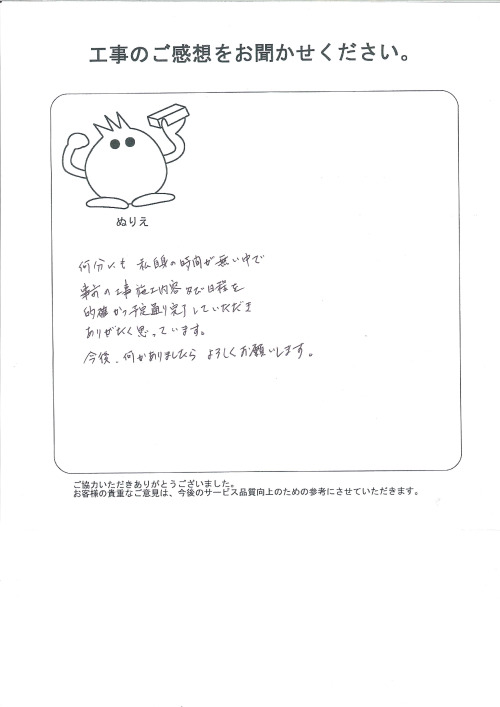 工事のご感想をお聞かせください。
ぬりえ
何分にも 私自身の時間が無い中で
事前の工事施工内容及び日程を
的確かつ予定通り完了していただき
ありがたく思っています。
今後、何かありましたら よろしくお願いします。
ご協力いただきありがとうございました。
お客様の貴重なご意見は、今後のサービス品質向上のための参考にさせていただきます。